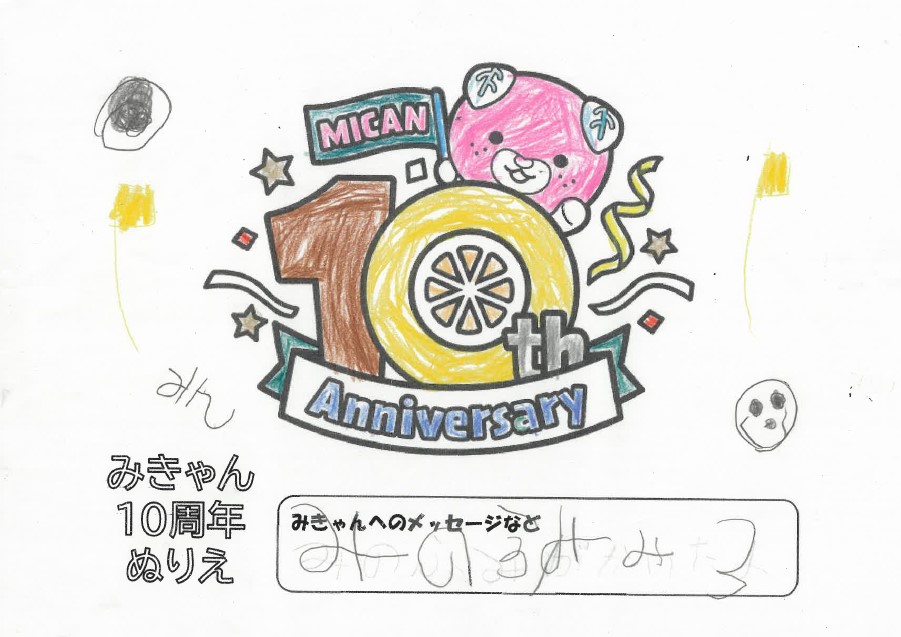 MICAN
10th
Anniversary
みん
みきゃん
10周年
ぬりえ
みきゃんへのメッセージなど